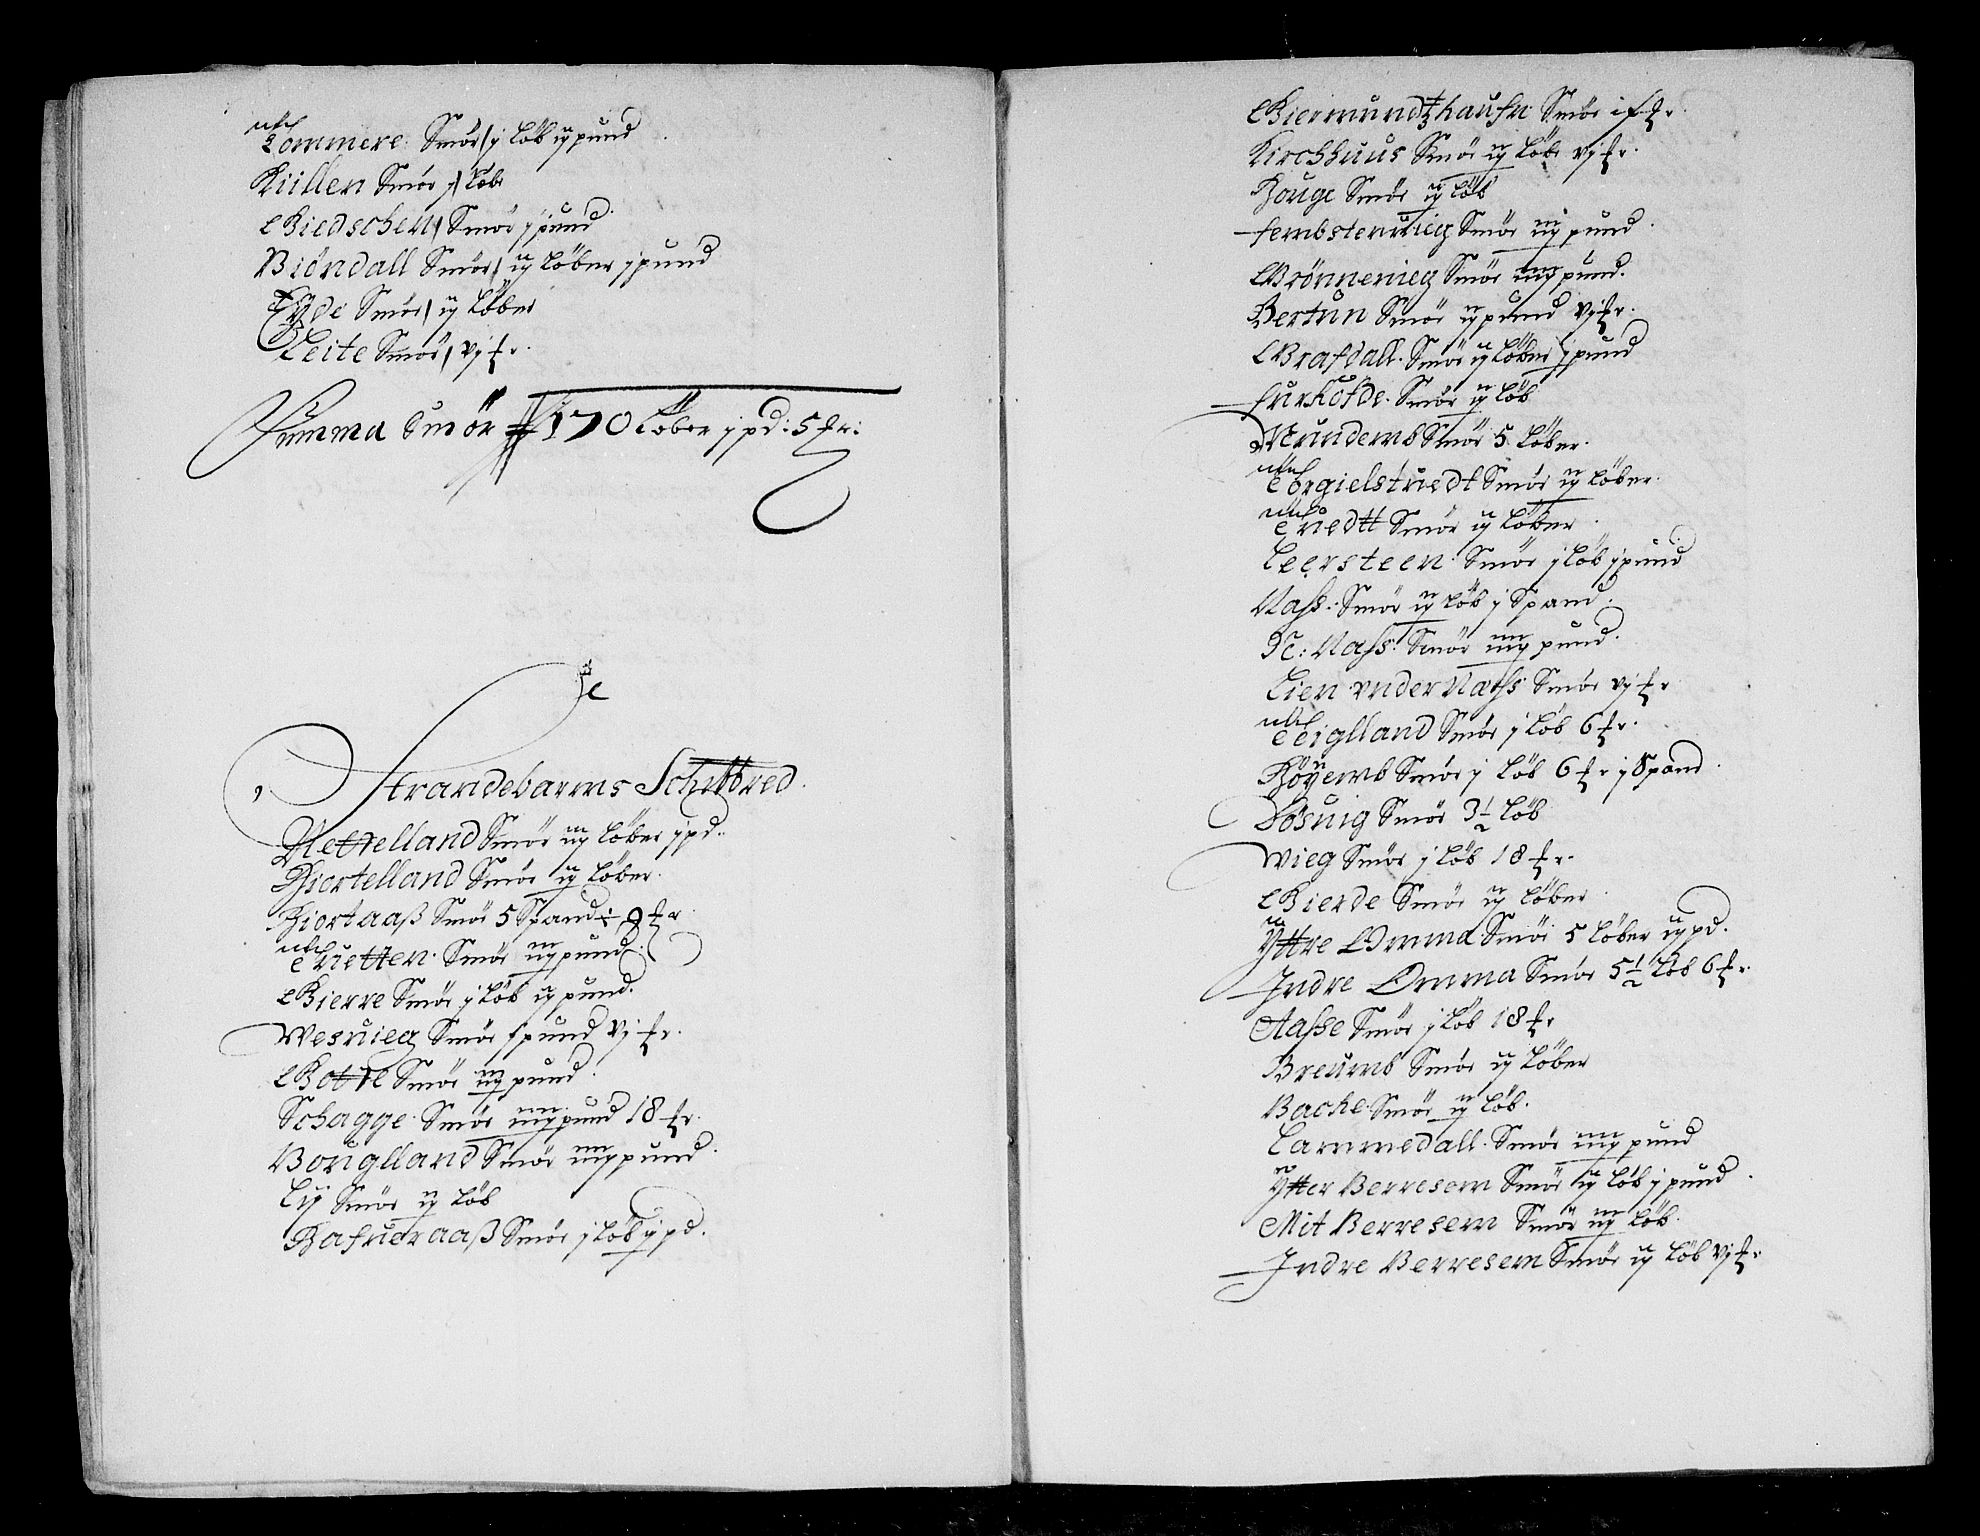 Lommere: Smör j löb ij pund
Küllen Smör j löb
Giedschen Smör j pund
Biöndall Smör ij löber j pund
Eyde Smör ij löber
Leite Smör vj fr.
Summa Smör 170 Löber j pd: 5 fr:
Strandebarms Schibbred.
Mettelland Smör iij löber j pd.
Hiertelland Smör ij löber.
Hiortaaß Smör 5 Spand ÷ 9 fr
Tuetten Smör iij pund.
Gierre Smör j löb ij pund.
Wesuieg Smör j pund vj fr.
Botne Smör iij pund.
Schagge Smör iiij pund 18 fr.
Bouglland Smör iiij pund.
Lij Smör ij löb
Hafueraaß Smör j löb ij pd.
Giermundtzhaufn Smör if fr.
Kirchhuus Smör ij löbe vj fr.
Houge Smör ij löb
Fembsteruieg Smör iij pund.
Brönneuieg Smör iiij pund.
Bertun Smör ij pund vj fr.
Brafdall. Smör ij löber j pund
Furhofde. Smör ij löb
Mundemb Smör 5 löber.
Torgielstuedt Smör ij löber.
Tuedtt Smör ij löber.
Leersteen Smör j löb j pund
Nass: Smör ij löb j Spand.
N: Nass: Smör iiij pund.
Lien vnder Næss Smör vj fr
Teiglland Smör j löb 6 fr.
Höyemb Smör j löb 6 fr j Spand.
Döşuig Smör 3½ löb
Wieg Smör j löb 18 fr.
Gierde Smör ij löber.
Yttre Omma Smör 5 löber ij pd.
Indre Omma Smör 5½ löb 6 fr.
Aasse Smör j löb 18 fr
Breumb Smör ij löber
Backe Smör ij löb.
Lammedall. Smör iiij pund
Ytter Berresem Smör ij löb j pund.
Mit Berresem Smör iij löb.
Indre Berresem Smör ij löb vj fr.